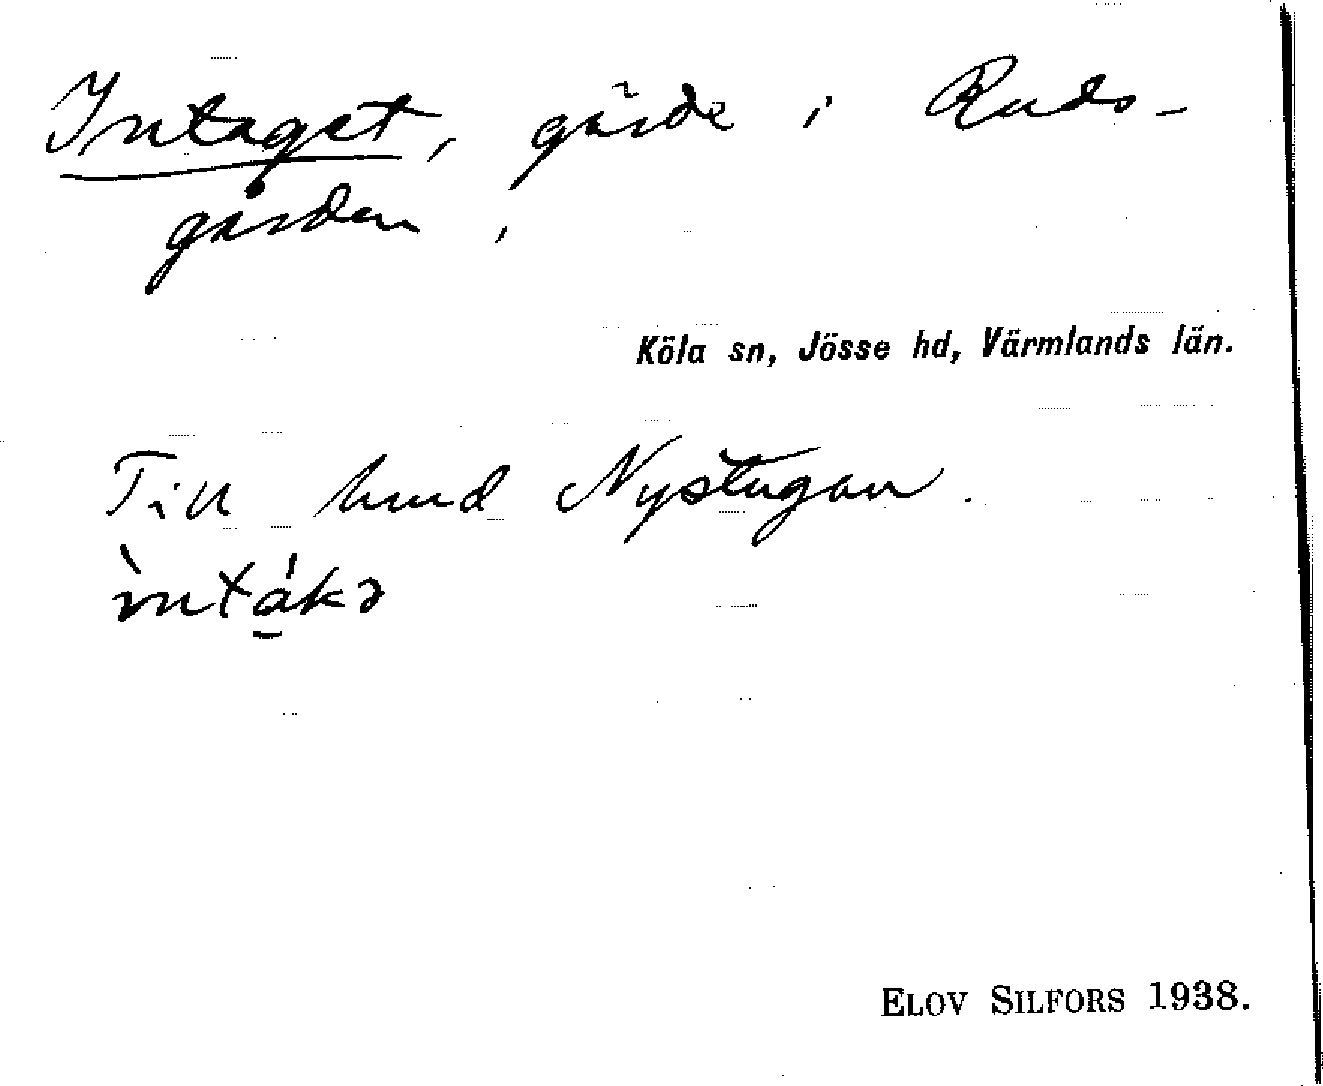 Intaget, gärde i Ruds-
gården,
Köla sn, Jösse hd, Värmlands län.
Till hmd Nystugan.
ìntákə
ELOV SILFORS 1938.